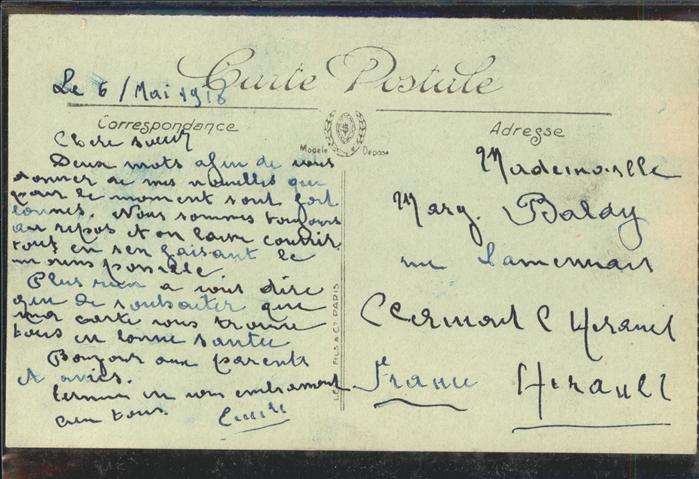 Carte Postale
Le 6 / Mai 1918
Correspondance
Adresse
Modèle Déposé
Chère sœur
Deux mots afin de vous
donner de mes nouvelles que
pour le moment sont fort
bonnes. Nous sommes toujours
au repos et on laisse courrir
tout en s'en faisant le
moins possible.
Plus rien à vous dire
que de souhaiter que
ma carte vous trouve
tous en bonne santée
Bonjour aux parents
et amies.
Termine en vous embrassant
bien tous.
Mademoiselle
Marg. Balay
rue Lamennais
Clermont l'Herault
France Herault
FILS & Cie PARIS